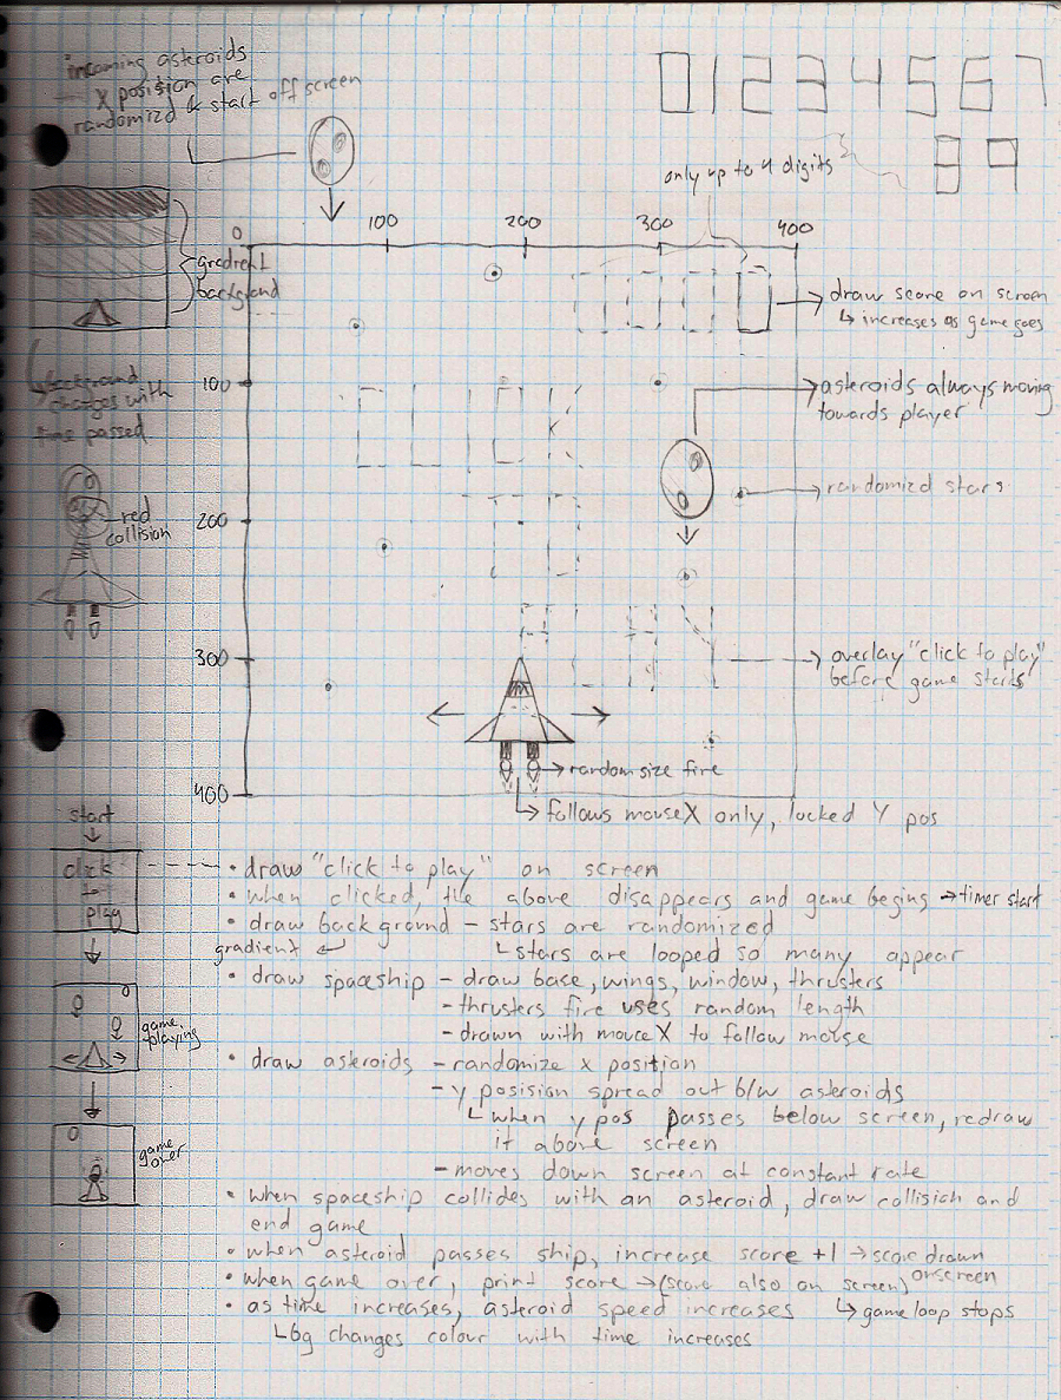 incoming asteroids
X position are
randomized & start off screen
0 1 2 3 4 5 6 7
8 9
only up to 4 digits
0 100 200 300 400
gradient
background
draw score on screen
↳ increases as game goes
100
background
changes with
time passed
asteroids always moving
towards player
randomized stars
red
collision
200
CLICK
TO
PLAY
300
overlay "click to play"
before game starts
random size fire
400
follows mouseX only, locked Y pos
start
click
to
play
• draw "click to play" on screen
• when clicked, the above disappears and game begins → timer start
• draw background - stars are randomized
gradient ↵ ↳ stars are looped so many appear
• draw spaceship - draw base, wings, window, thrusters
- thrusters fire uses random length
- drawn with mouseX to follow mouse
game playing
• draw asteroids - randomize x position
- y posision spread out b/w asteroids
↳ when y pos passes below screen, redraw
it above screen
- moves down screen at constant rate
game over
• when spaceship collides with an asteroid, draw collision and
end game
• when asteroid passes ship, increase score +1 → score drawn
onscreen
• when game over, print score → (score also on screen)
↳ game loop stops
• as time increases, asteroid speed increases
↳ bg changes colour with time increases